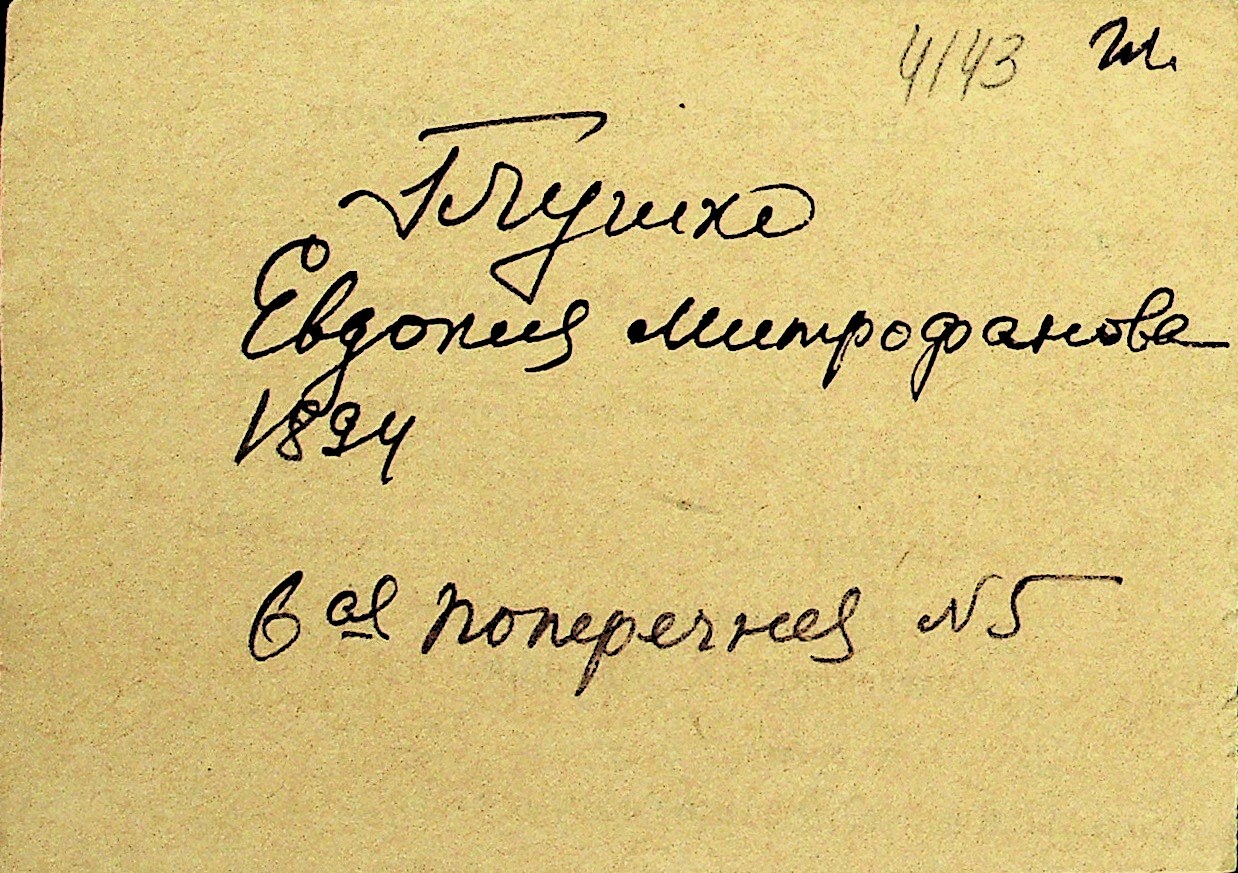 4143 Ж.
Глушко
Евдокия Митрофанова
1894
6ая поперечная №5